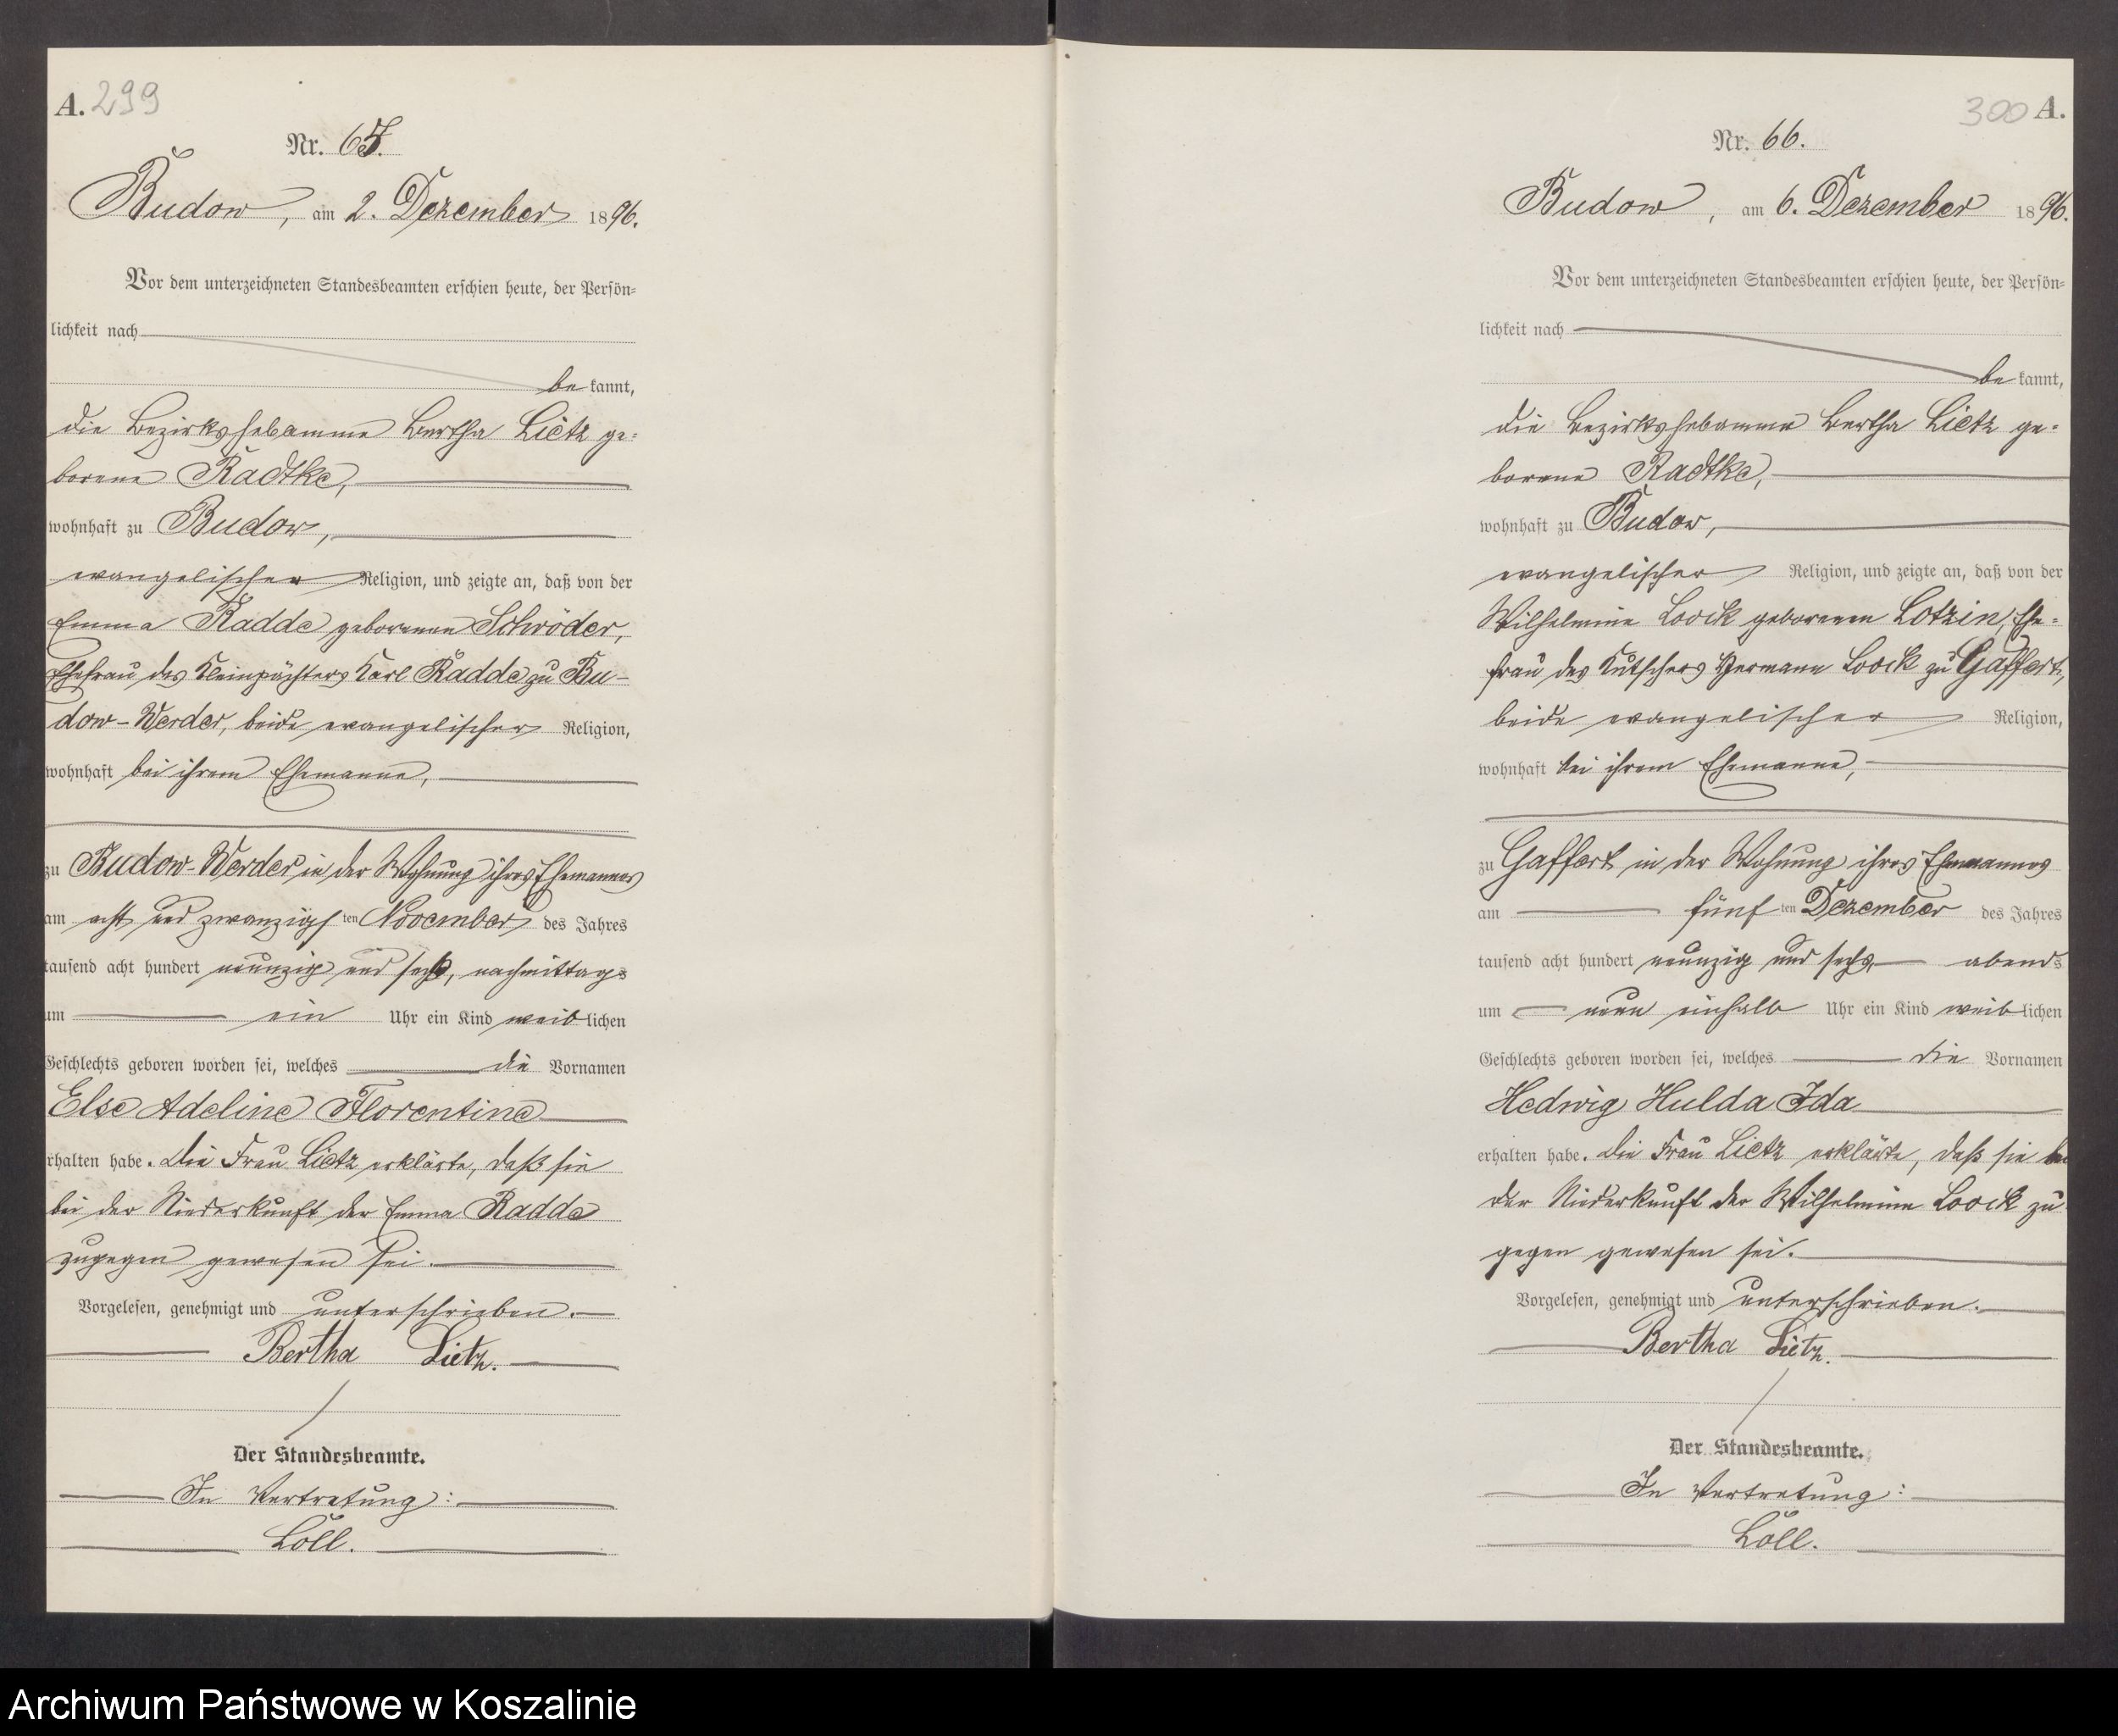 A. 299
Nr. 65.
Budow, am 2. Dezember 1896.
Vor dem unterzeichneten Standesbeamten erschien heute, der Persön=
lichkeit nach
be kannt,
die Bezirkshebamme Bertha Lietz ge=
borene Radtke,
wohnhaft zu Budow,
evangelischer Religion, und zeigte an, daß von der
Emma Radde geborenen Schröder,
Ehefrau des Kleinpächters Karl Radde zu Bu-
dow-Werder, beide evangelischer Religion,
wohnhaft bei ihrem Ehemanne,
zu Budow-Werder in der Wohnung ihres Ehemannes
am acht und zwanzigs ten November des Jahres
tausend acht hundert neunzig und sechs, nachmittags
um ein Uhr ein Kind weib lichen
Geschlechts geboren worden sei, welches die Vornamen
Else Adeline Florentine
erhalten habe. Die Frau Lietz erklärte, daß sie
bei der Niederkunft der Emma Radde
zugegen gewesen sei.
Vorgelesen, genehmigt und unterschrieben.
Bertha Lietz.
Der Standesbeamte.
In Vertretung:
Löll.
300 A.
Nr. 66.
Budow, am 6. Dezember 1896.
Vor dem unterzeichneten Standesbeamten erschien heute, der Persön=
lichkeit nach
be kannt,
die Bezirkshebamme Bertha Lietz ge=
borene Radtke,
wohnhaft zu Budow,
evangelischer Religion, und zeigte an, daß von der
Wilhelmine Loock geborenen Lotzin, Ehe=
frau des Kutschers Hermann Loock zu Gaffert,
beide evangelischer Religion,
wohnhaft bei ihrem Ehemanne,
zu Gaffert in der Wohnung ihres Ehemannes
am fünf ten Dezember des Jahres
tausend acht hundert neunzig und sechs, abends
um neun einhalb Uhr ein Kind weib lichen
Geschlechts geboren worden sei, welches die Vornamen
Hedwig Hulda Ida
erhalten habe. Die Frau Lietz erklärte, daß sie bei
der Niederkunft der Wilhelmine Loock zu
gegen gewesen sei.
Vorgelesen, genehmigt und unterschrieben.
Bertha Lietz.
Der Standesbeamte.
In Vertretung:
Löll.
Archiwum Państwowe w Koszalinie